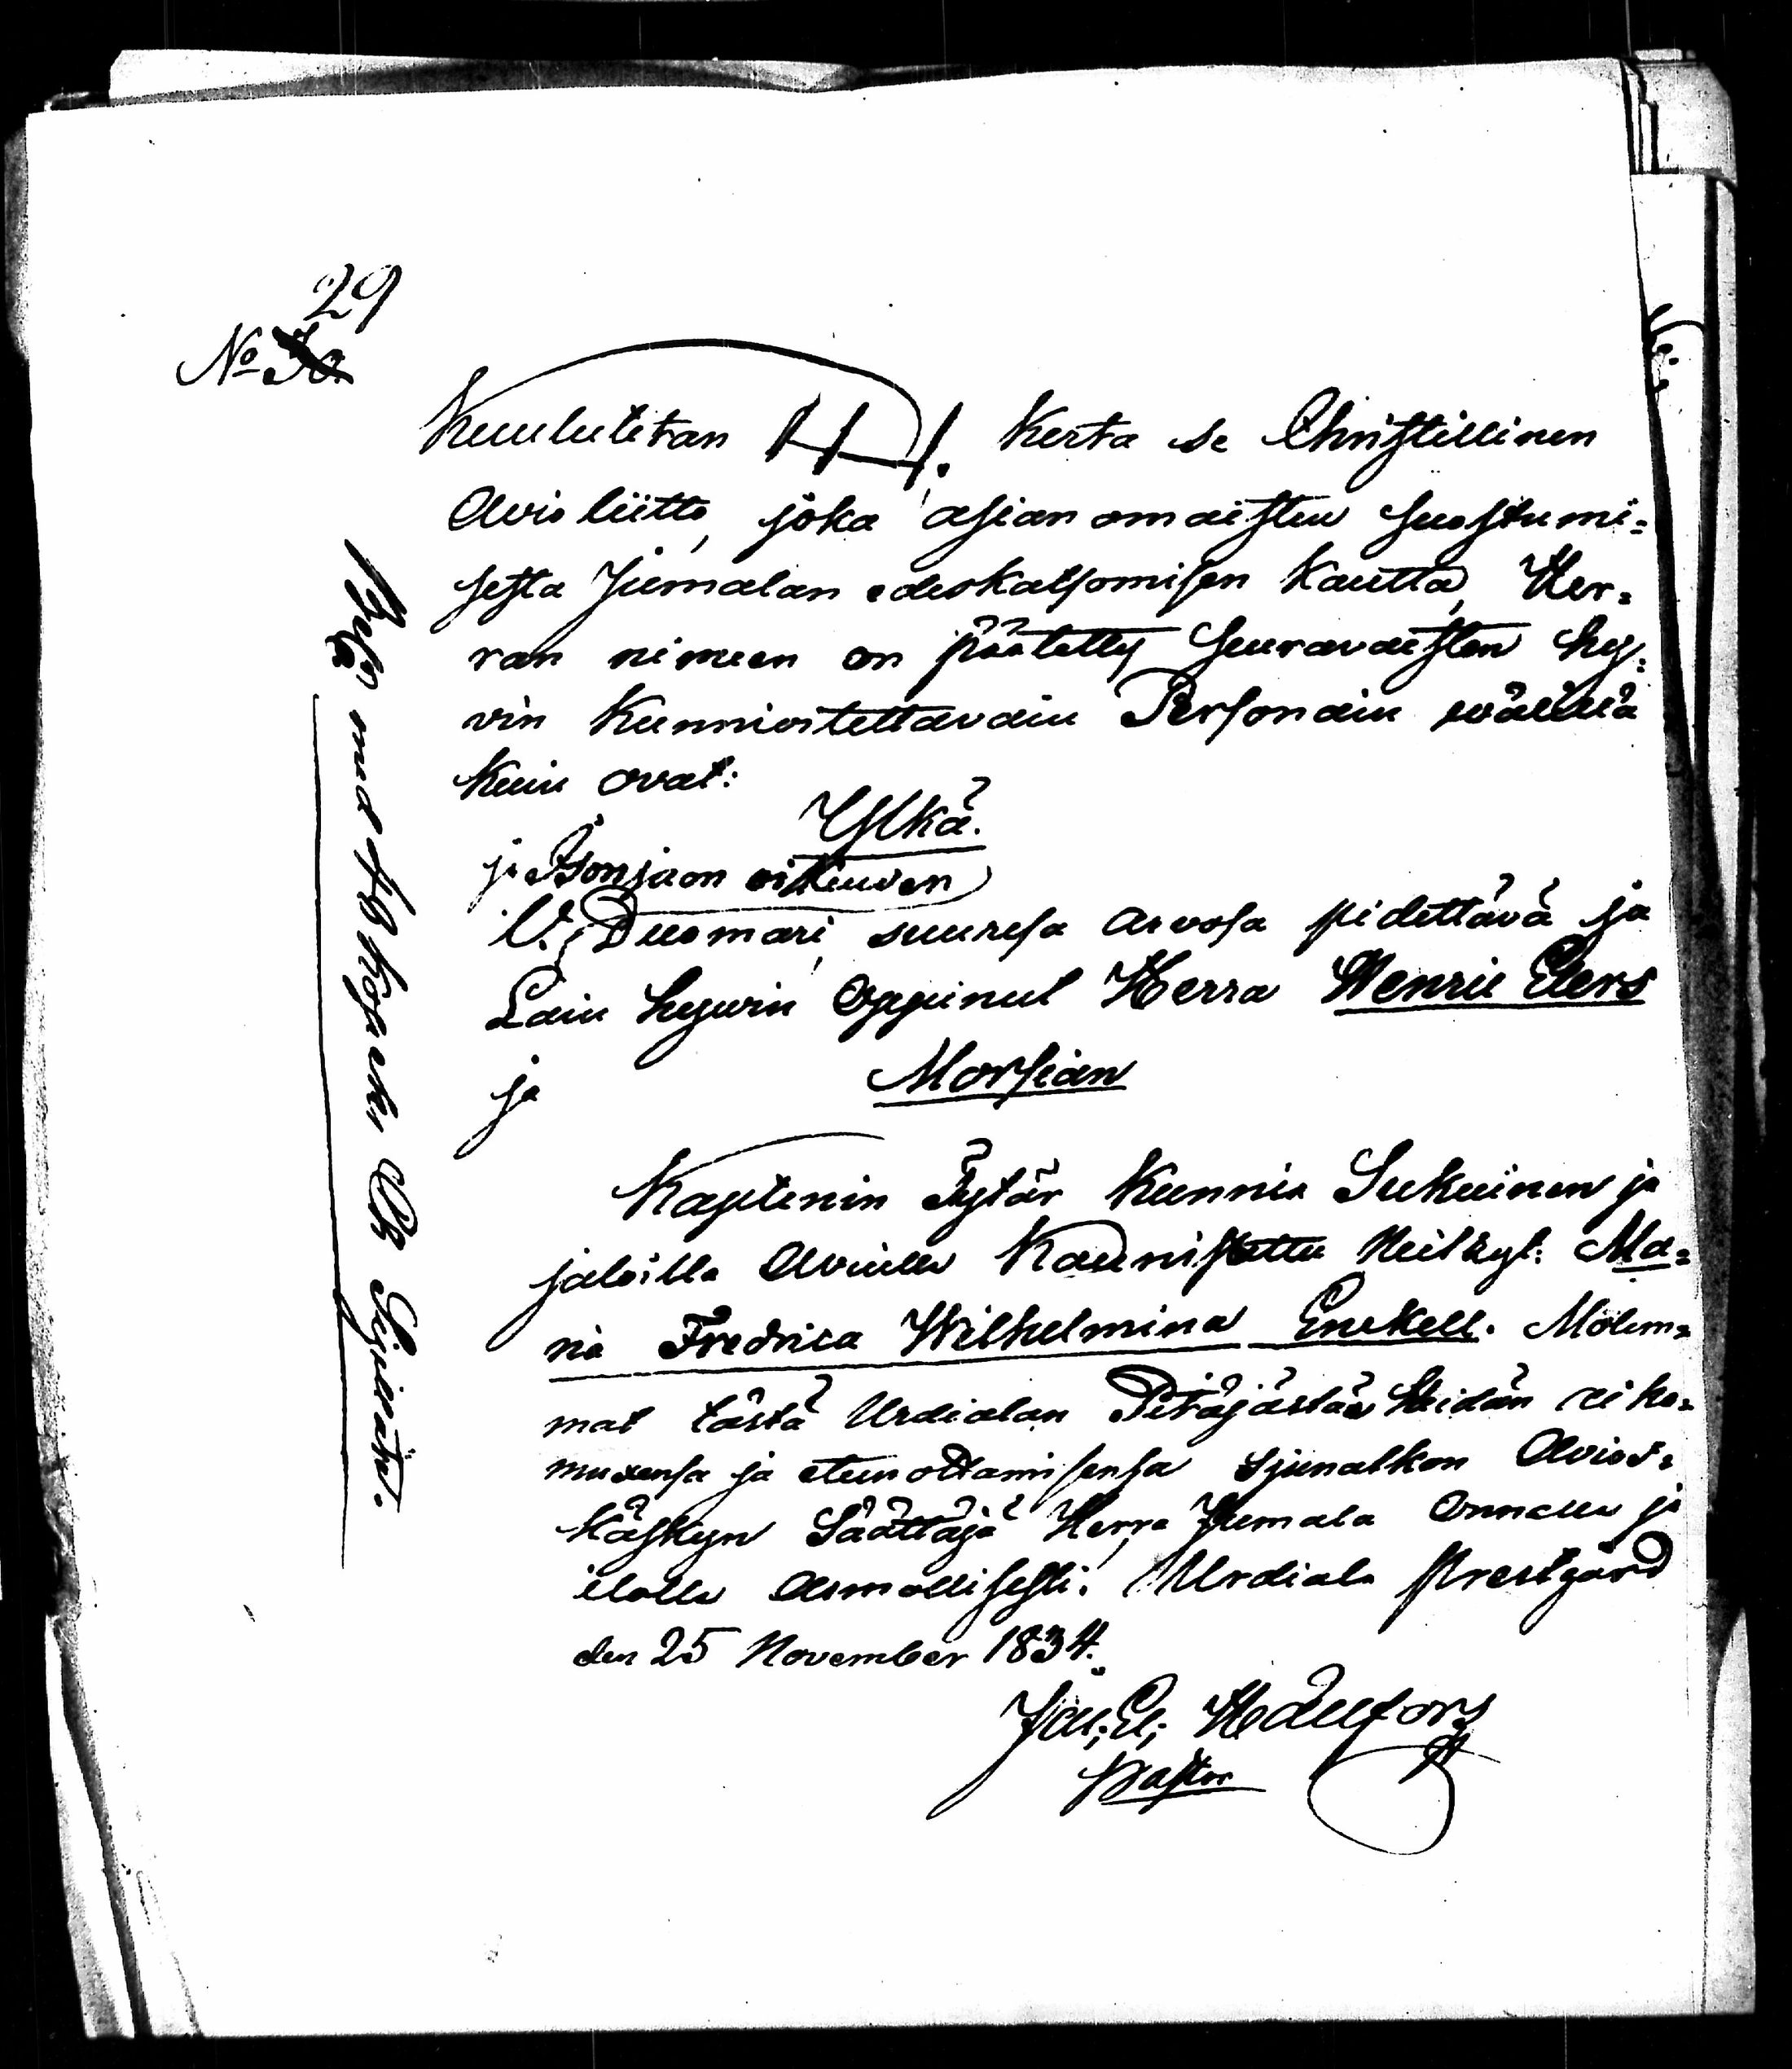 29
No 30.
Kuulutetan I I I. Kerta se Christillinen
Avioliitto, joka asianomaisten suostumi=
sesta Jumalan edeskatsomisen kautta, Her=
ran nimeen on päätetty seuravaisten hy=
vin kunnioitettavain Personain wälillä
kuin ovat:
Ylkä.
ja Isonjaon oikeuden
V. Duomari, suuresa arvosa pidettävä ja
Lain hywin oppinut Herra Henric Elers
ja Morsian
Kaptenin Tytär Kunnia Sukuinen ja
jaloilla Avuilla Kaunistettu Neitzyt. Ma=
ria Fredrica Wilhelmina Enckell. Molem=
mat tästä Urdialan Pitäjästä. Heidän aiko=
muxensa ja eteenottamisensa sjunatkon Avios=
käskyn Säättäjä Herra Jumala Onnella ja
ilolla Armollisesti. Urdiala Prestgård
den 25 November 1834.
Joh. El. Hällfors
Pastor
med 48 kopek. B Sigillatr.